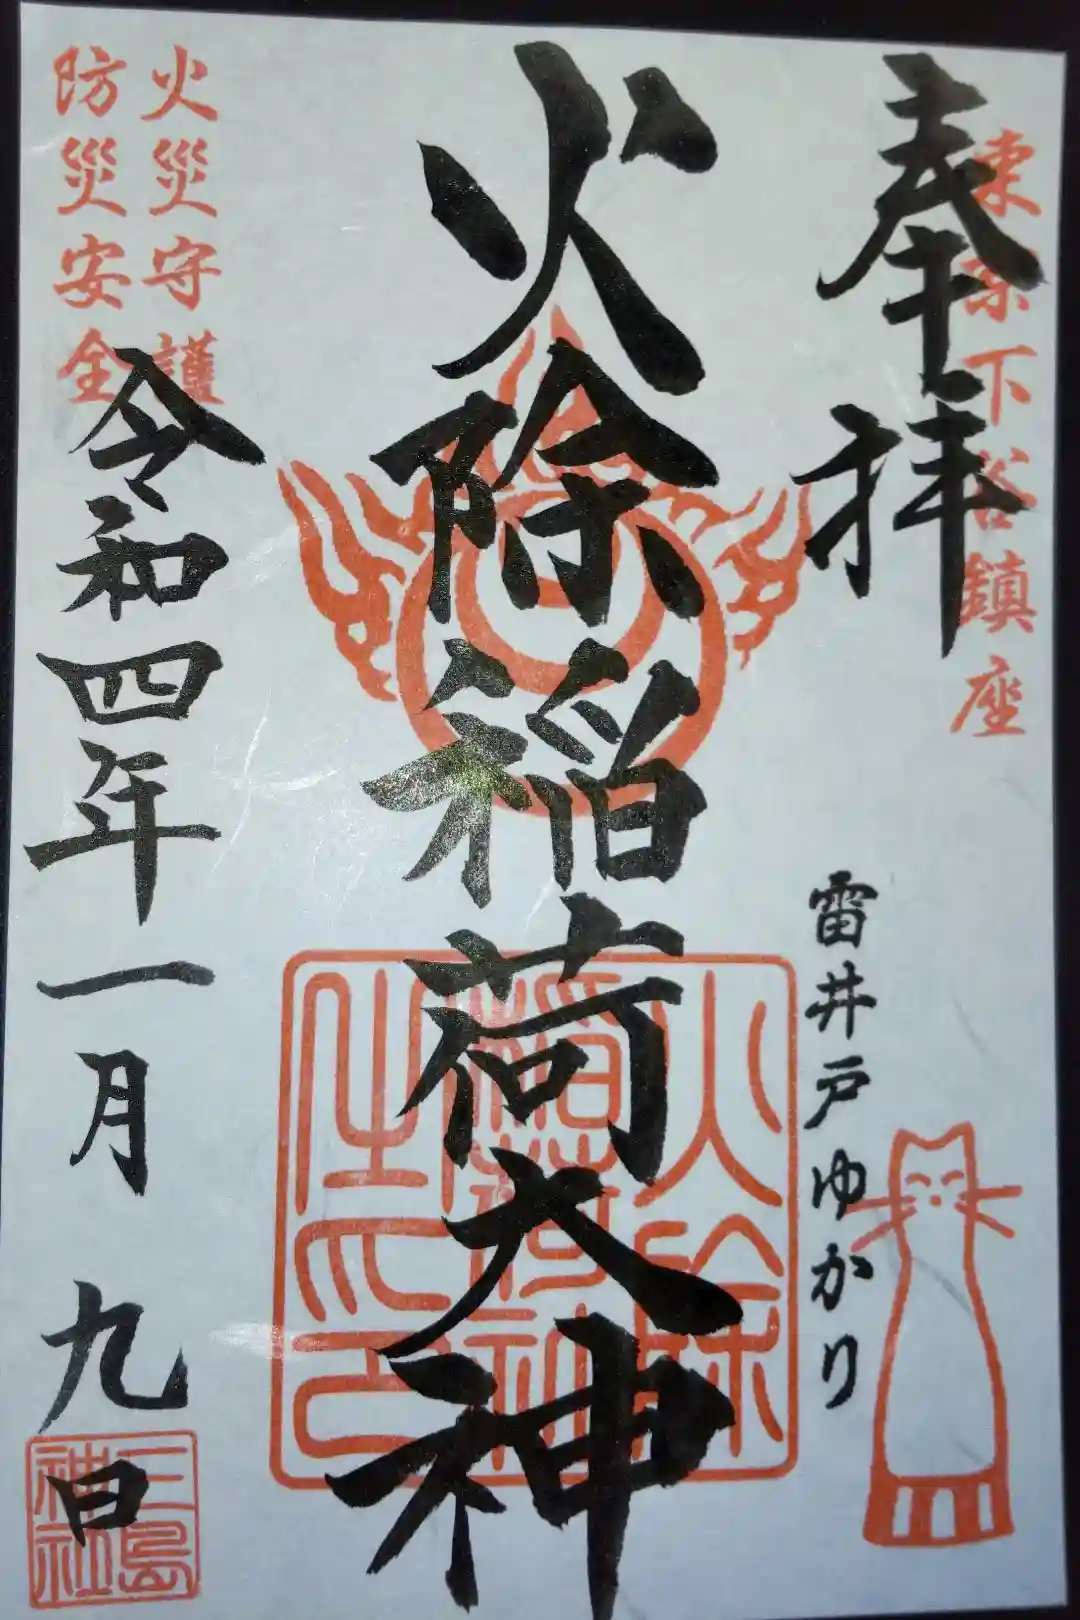 奉拝
東京下谷鎮座
雷井戸ゆかり
火除稲荷大神
火除
稲荷神社
之印
火災守護
防災安全
令和四年一月九日
三島
神社